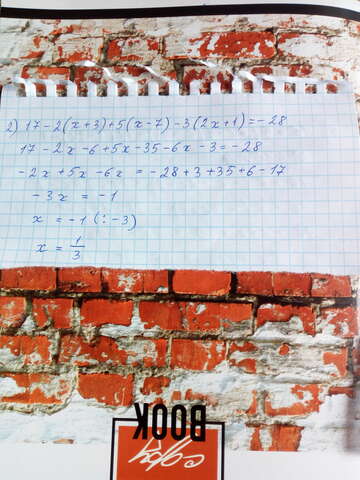 2) 17 - 2(x+3)+5(x-7)-3(2x+1)=-28
17 - 2x - 6+5x-35-6x-3=-28
-2x+5x-6x = -28+3+35+6-17
-3x = -1
x = -1 (:-3)
x = 1/3
BOOK